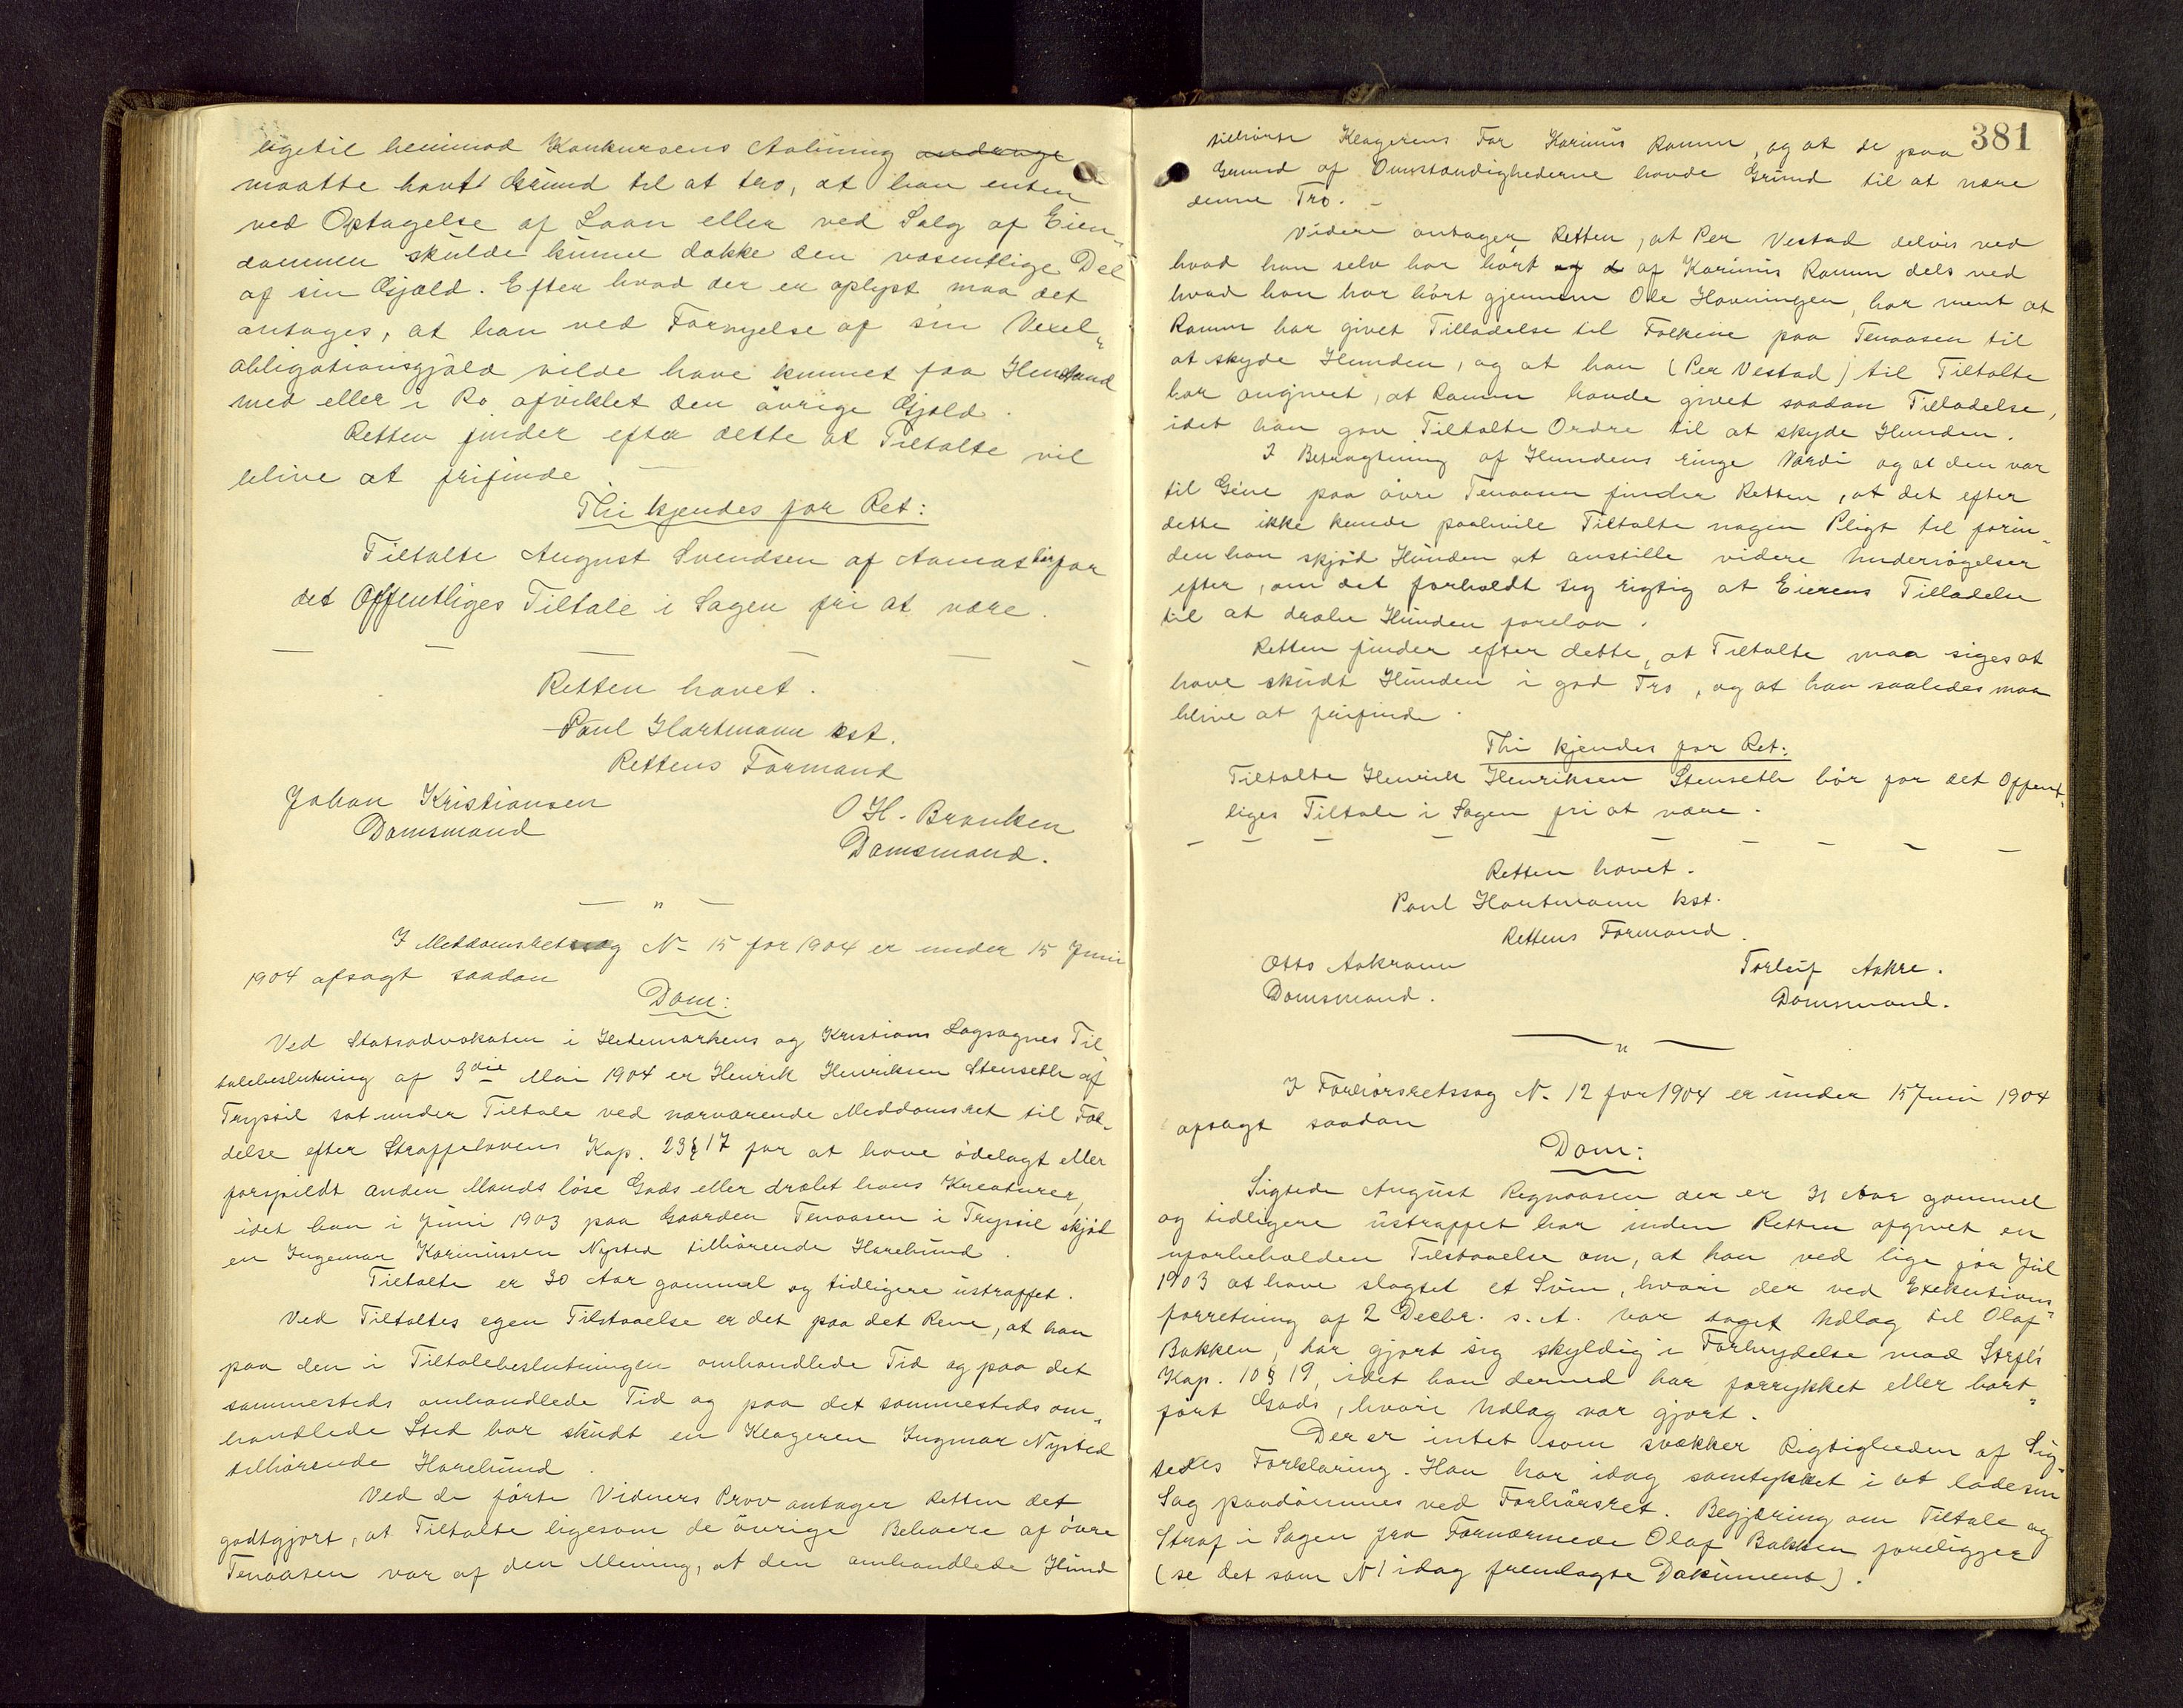 ligetil henimod Konkursens Aabning andrage
maatte havt Grund til at tro, at han enten
ved Optagelse af Laan eller ved Salg af Eien-
dommen skulde kunne dække den væsentlige Del
af sin Gjæld. Efter hvad der er oplyst maa det
antages, at han ved Fornyelse af sin Vexel-
obligationsgjæld vilde have kunnet faa Henstand
med eller i Ro afviklet den øvrige Gjæld.
Retten finder efter dette at Tiltalte vil
blive at frifinde
Thi kjendes for Ret:
Tiltalte August Svendsen af Aamot bør for
det Offentliges Tiltale i Sagen fri at være.
Retten hævet.
Paul Hartmann kst.
Rettens Formand
Johan Kristiansen
Domsmand
O H. Branken
Domsmand.
— " —
I Meddomsretssag No 15 for 1904 er under 15 Juni
1904 afsagt saadan
Dom:
Ved Statsadvokaten i Hedemarkens og Kristians Lagsognes Til-
talebeslutning af 3die Mai 1904 er Henrik Henriksen Stenseth af
Trysil sat under Tiltale ved nærværende Meddomsret til Fæl-
delse efter Straffelovens Kap. 23 § 17 for at have ødelagt eller
forspildt anden Mands løse Gods eller dræbt hans Kreaturer,
idet han i Juni 1903 paa Gaarden Tenaasen i Trysil skjød
en Ingemar Karinussen Nysted tilhørende Harehund.
Tiltalte er 30 Aar gammel og tidligere ustraffet.
Ved Tiltaltes egen Tilstaaelse er det paa det Rene, at han
paa den i Tiltalebeslutningen omhandlede Tid og paa det
sammesteds omhandlede Tid og paa det sammesteds om-
handlede Sted har skudt en Klageren Ingmar Nysted
tilhørende Harehund.
Ved de førte Vidners Prov antager Retten det
godtgjort, at Tiltalte ligesom de øvrige Beboere af øvre
Tenaasen var af den Mening, at den omhandlede Hund
381
tilhørte Klagerens Far Karinus Ramm, og at de paa
Grund af Omstændighederne havde Grund til at være
denne Tro. -
Videre antager Retten, at Per Vestad delvis ved
hvad han selv har hørt og d af Karinus Ramm dels ved
hvad han har hørt gjennem Ole Havningen, har ment at
Ramm har givet Tilladelse til Folkene paa Tenaasen til
at skyde Hunden, og at han (Per Vestad) til Tiltalte
har angivet, at Ramm havde givet saadan Tilladelse,
idet han gav Tiltalte Ordre til at skyde Hunden.
I Betragtning af Hundens ringe Værdi og at den var
til Gene paa øvre Tenaasen finder Retten, at det efter
dette ikke kunde paahvile Tiltalte nogen Pligt til forin-
den han skjød Hunden at anstille videre Undersøgelser
efter, om det forholdt sig rigtig at Eierens Tilladelse
til at dræbe Hunden forelaa.
Retten finder efter dette, at Tiltalte maa siges at
have skudt Hunden i god Tro, og at han saaledes maa
blive at frifinde.
Thi kjendes for Ret:
Tiltalte Henrik Henriksen Stenseth bør for det Offent-
liges Tiltale i Sagen fri at være.
Retten hævet.
Paul Hartmann kst.
Rettens Formand.
Otto Aakrann
Domsmand.
Torleif Aakre.
Domsmand.
— " —
I Forhørsretssag No 12 for 1904 er under 15 Juni 1904
afsagt saadan
Dom:
Sigtede August Regnaasen der er 31 Aar gammel
og tidligere ustraffet har inden Retten afgivet en
uforbeholden Tilstaaelse om, at han ved lige før Jul
1903 at have slagtet et Svin, hvori der ved Exekutions-
forretning af 2 Decbr. s. A. var taget Udlæg til Olaf
Bakken, har gjort sig skyldig i Forbrydelse mod Strfl's
Kap. 10 § 19, idet han dermed har forrykket eller bort-
ført Gods, hvori Udlæg var gjort.
Der er intet som svækker Rigtigheden af Sig-
tedes Forklaring. Han har idag samtykket i at lade sin
Sag paadømmes ved Forhørsret. Begjæring om Tiltale og
Straf i Sagen fra Fornærmede Olaf Bakken foreligger
(se det som No 1 idag fremlagte Dokument).